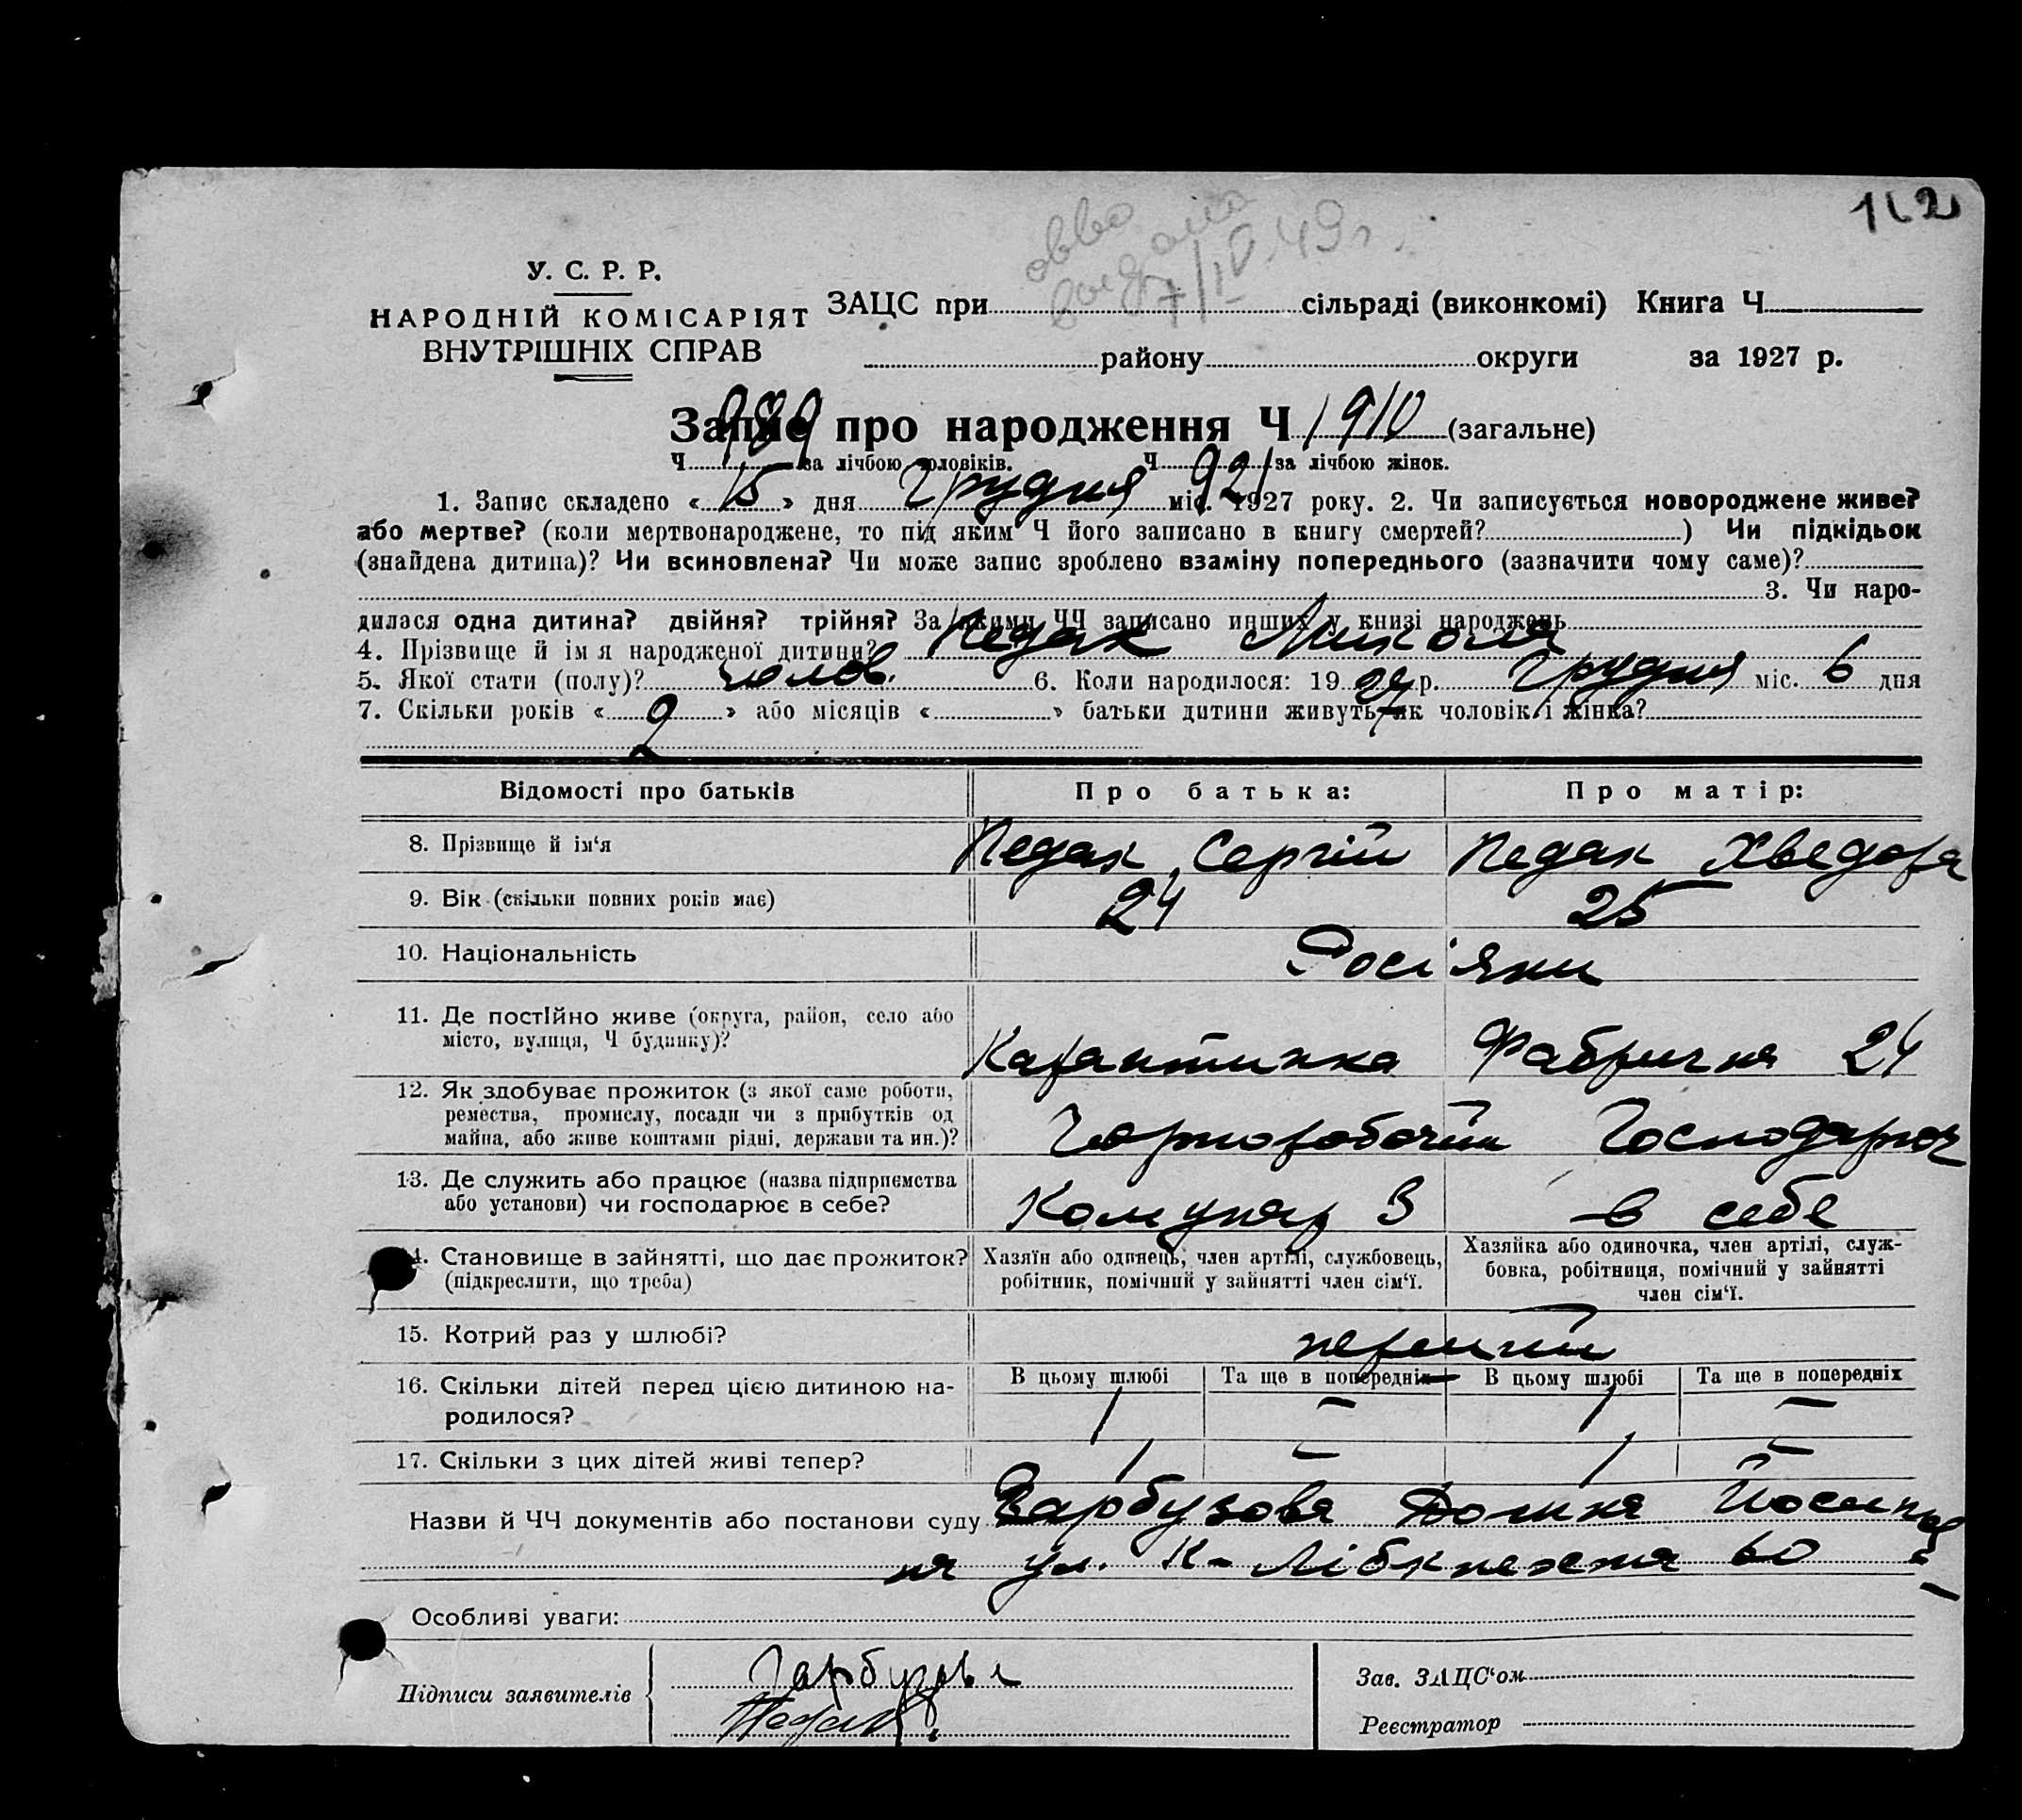 У. С. Р. Р.
НАРОДНІЙ КОМІСАРІЯТ
ВНУТРІШНІХ СПРАВ
7/IV 49 г.
ЗАЦС при сільраді (виконкомі) Книга Ч
району округи за 1927 р.
Запис про народження Ч 1910 (загальне)
Ч 989 за лічбою чоловіків. Ч 921 за лічбою жінок.
1. Запис складено « 15 » дня Грудня міс. 1927 року. 2. Чи записується новороджене живе?
або мертве? (коли мертвонароджене, то під яким Ч його записано в книгу смертей? ) Чи підкідьок
(знайдена дитина)? Чи всиновлена? Чи може запис зроблено взаміну попереднього (зазначити чому саме)?
3. Чи наро-
дилася одна дитина? двійня? трійня? За якими ЧЧ записано инших у книзі народжень
4. Прізвище й ім я народженої дитини? Педак Микола
5. Якої стати (полу)? чолов. 6. Коли народилося: 19 27 р. Грудня міс. 6 дня
7. Скільки років « 2 » або місяців « » батьки дитини живуть як чоловік і жінка?
Відомості про батьків Про батька: Про матір:
8. Прізвище й ім‘я Педак Сергій Педак Хведора
9. Вік (скільки повних років має) 24 25
10. Національність Росіяни
11. Де постійно живе (округа, район, село або
місто, вулиця, Ч будинку)? Карантинка Фабрична 24
12. Як здобуває прожиток (з якої саме роботи,
ремества, промислу, посади чи з прибутків од
майна, або живе коштами рідні, держави та ин.)? Чорноробочий Господарює
13. Де служить або працює (назва підприємства
або установи) чи господарює в себе? Комунар 3 в себе
4. Становище в зайнятті, що дає прожиток?
(підкреслити, що треба)
Хазяїн або одинець, член артілі, службовець,
робітник, помічний у зайнятті член сім‘ї.
Хазяйка або одиночка, член артілі, служ-
бовка, робітниця, помічний у зайнятті
член сім‘ї.
15. Котрий раз у шлюбі? перший
16. Скільки дітей перед цією дитиною на-
родилося?
В цьому шлюбі Та ще в попередніх В цьому шлюбі Та ще в попередніх
1 — 1 —
17. Скільки з цих дітей живі тепер? 1 — 1 —
Назви й ЧЧ документів або постанови суду Гарбузова
ул. К-Лібкнехта 60
Особливі уваги:
Підписи заявителів Гарбузова
Педак
Зав. ЗАЦС‘ом
Реєстратор